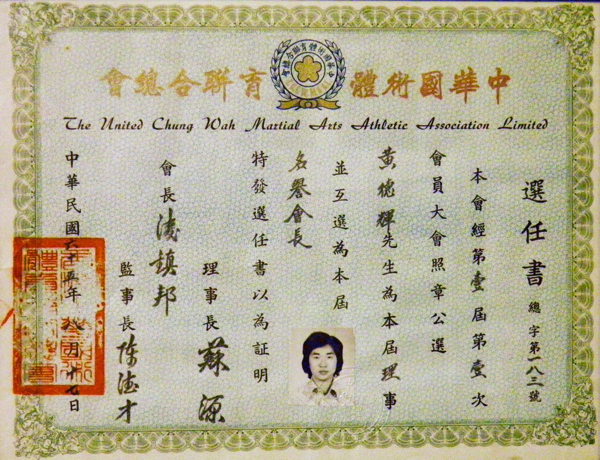 中華國術體育聯合總會
The United Chung Wah Martial Arts Athletic Association Limited
選任書 總字第一八三號
本會經第壹屆第壹次
會員大會照章公選
黃德輝先生為本屆理事
並互選為本屆
名譽會長
特發選任書以為証明
理事長 蘇源
會長 凌鎮邦
監事長 陳德才
中華民國六十五年八月十七日